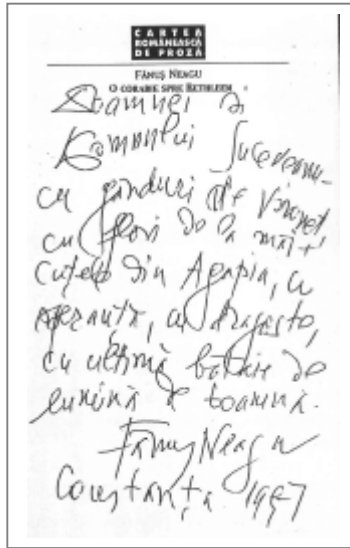 CARTEA
ROMÂNEASCĂ
DE PROZĂ
FĂNUȘ NEAGU
O CORABIE SPRE BETHLEEM
Doamnei și
Domnului Suceveanu
cu gânduri de Voroneț
cu flori de la măi-
cuțele din Agapia, cu
speranță, cu dragoste,
cu ultimă bătaie de
lumină de toamnă.
Fănuș Neagu
Constanța 1997